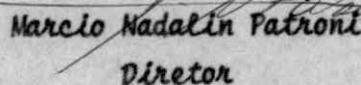 Marcio Nadalin Patroni
Diretor